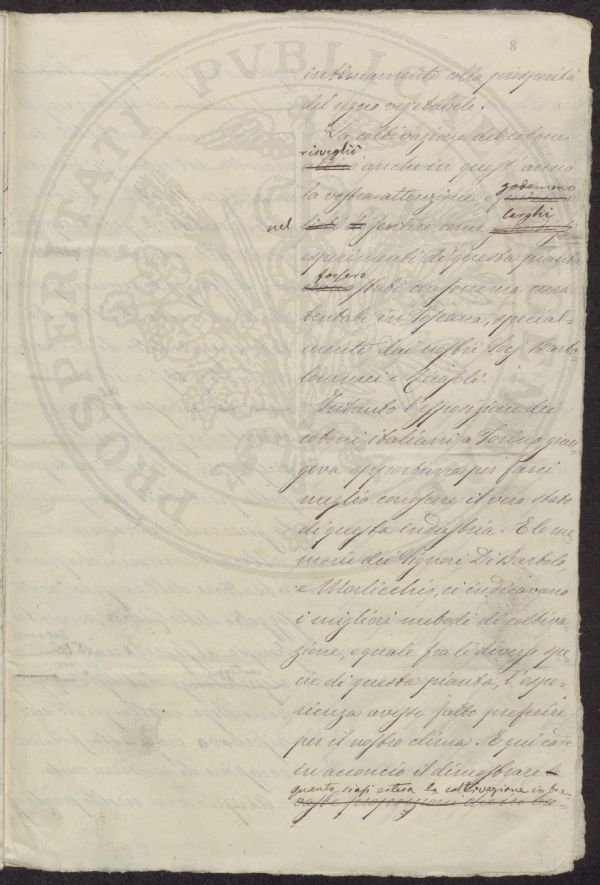 8
intimamente colla prosperità
del regno vegetabile.
La coltivazione del cotone
risvegliò
anche in quest'anno
la vostra attenzione, e godemmo
nel sentire come larghi
esperimenti di questa pianta
fossero stati con somma cura
tentati in Toscana, special-
mente dai nostri Soci Barto-
lommei e
Intanto l'esposizione dei
cotoni italiani a Torino giun-
geva opportuna per farci
meglio conoscere il vero stato
di questa industria. E le me-
morie dei Signori Di Bartolo,
e Morticchio, ci indicavano
i migliori metodi di coltiva-
zione, e quale fra le diverse spe-
cie di questa pianta, l'espe-
rienza avesse fatto preferire
per il nostro clima. E qui cade
in acconcio il dimostrare
quanto siasi estesa la coltivazione in bre-
PROSPERITATI PVBLICAE